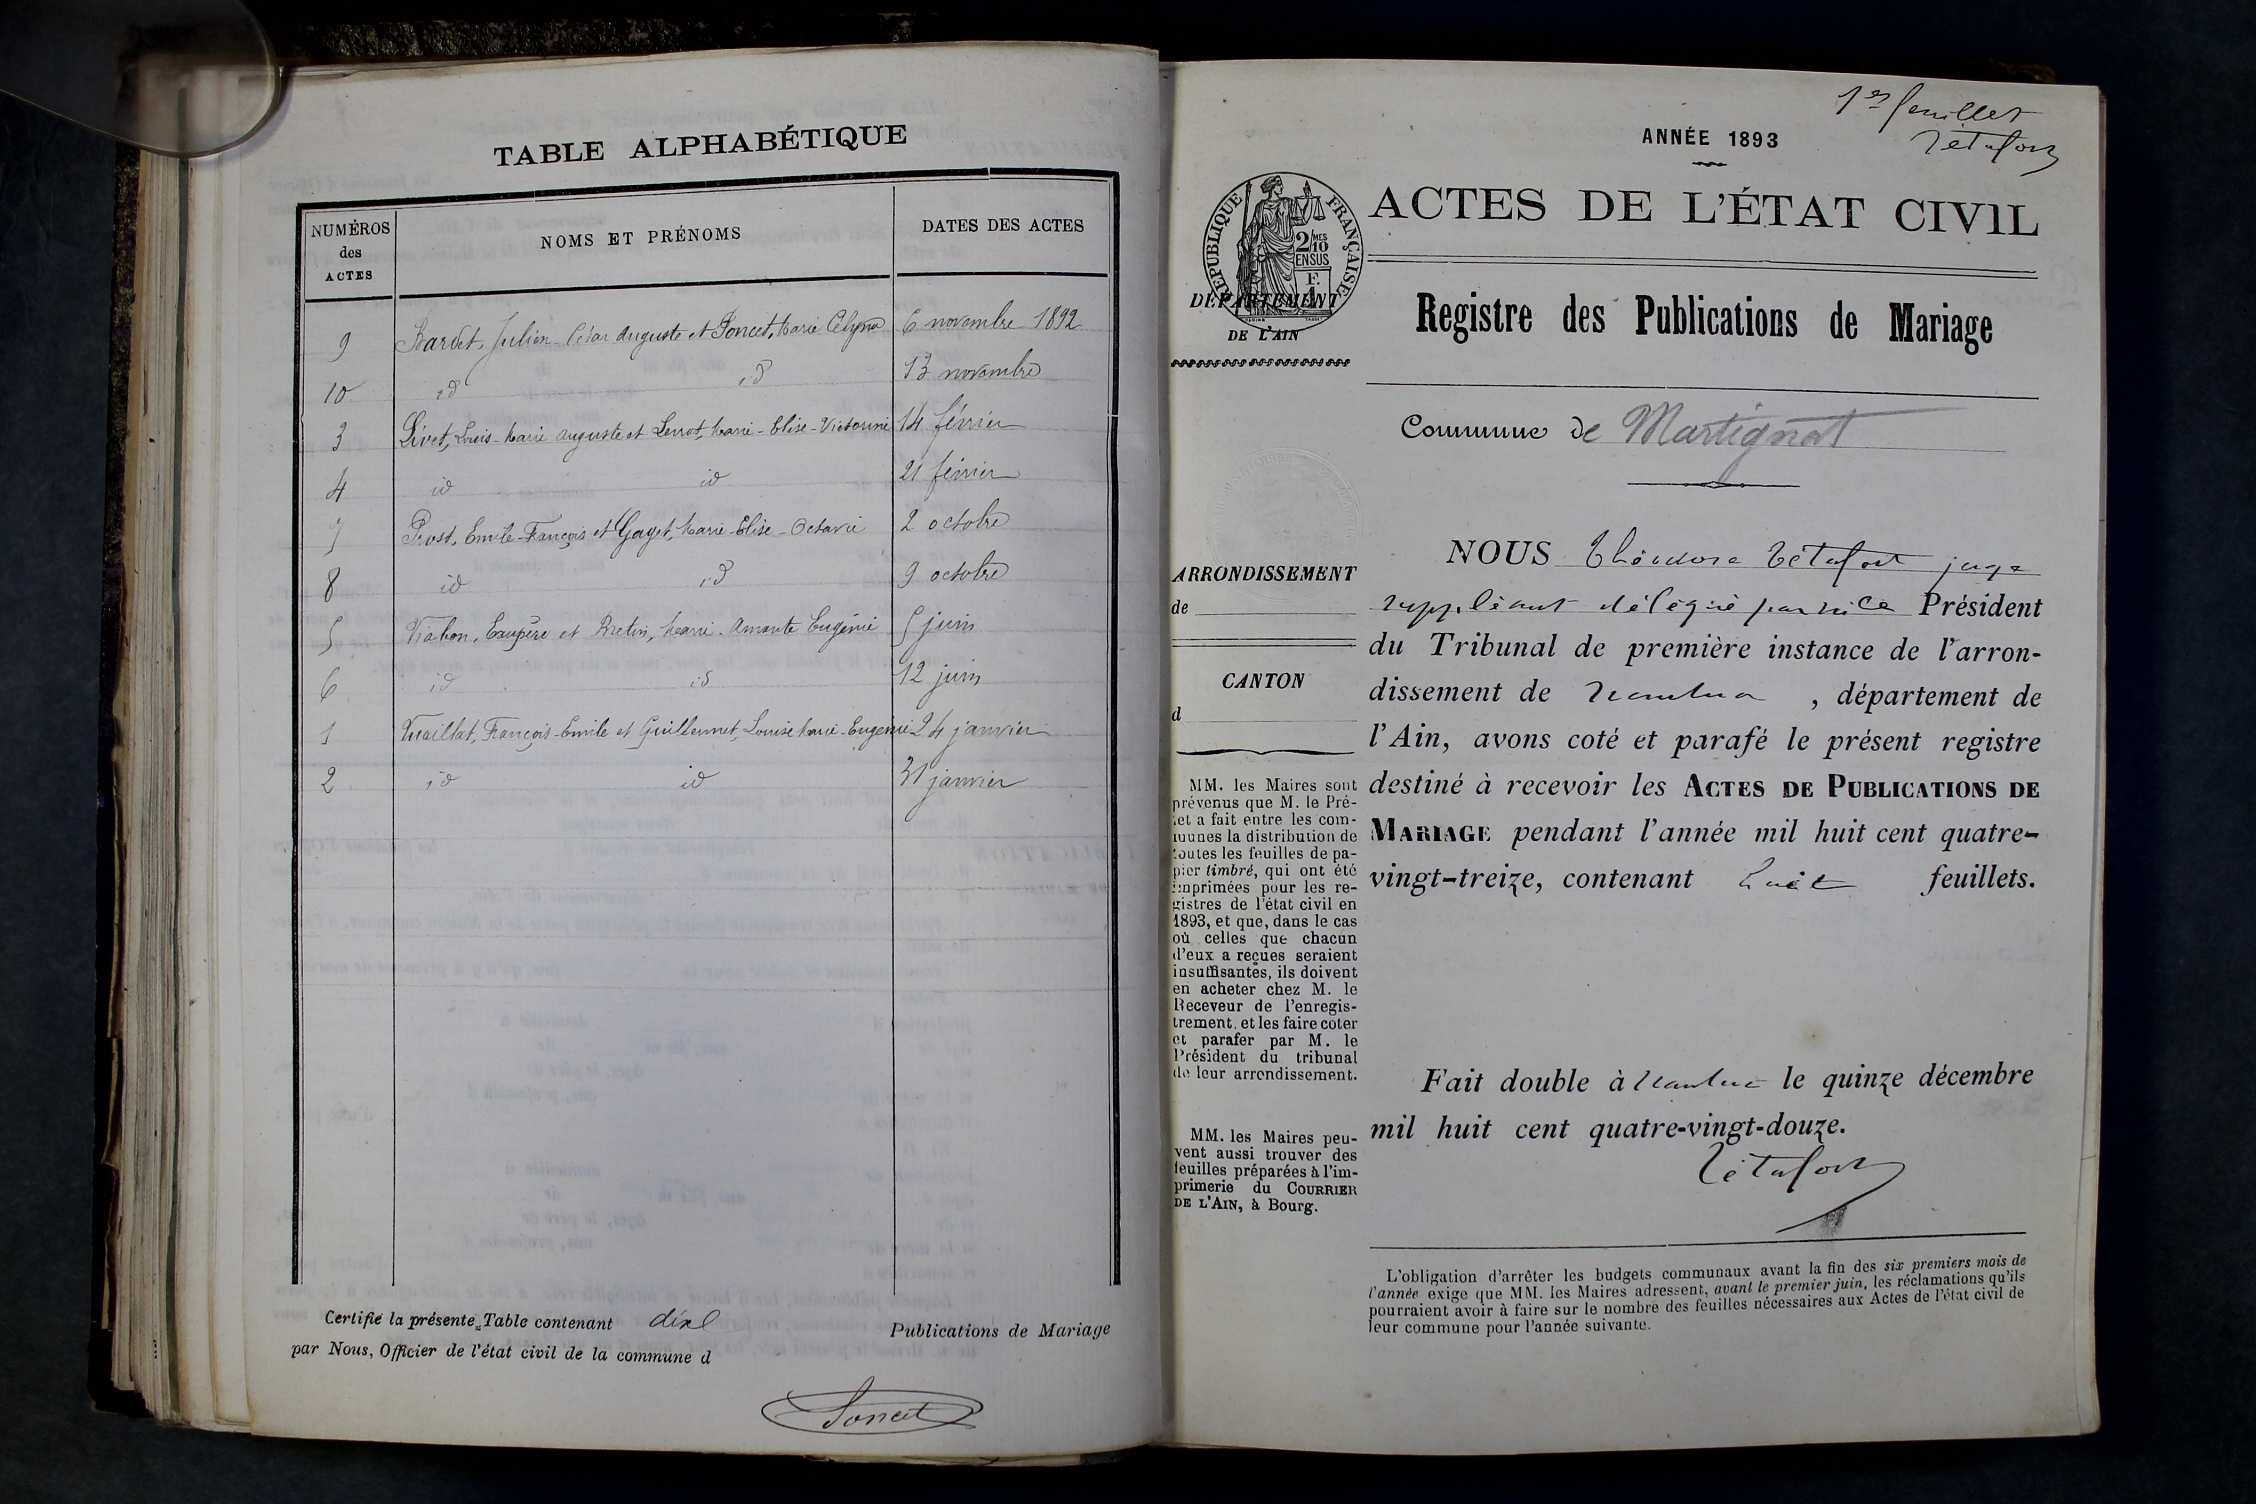 TABLE ALPHABÉTIQUE
NUMÉROS des ACTES
NOMS ET PRÉNOMS
DATES DES ACTES
9 Bardet, Julien-César Auguste et Poncet, Marie Célyna 6 novembre 1892
10 id id 13 novembre
3 Livet, Louis-Marie Auguste et Marie-Elise-Victorine 14 février
4 id id 21 février
7 Prost, Emile-François et Gaget, Marie-Elise-Octavie 2 octobre
8 id id 9 octobre
5 et Bretin, Marie-Amante Eugénie 5 juin
6 id id 12 juin
1 Vuaillat, François-Emile et Guillermet, Louise Marie-Eugénie 24 janvier
2 id id 31 janvier
Certifié la présente Table contenant dix Publications de Mariage
par Nous, Officier de l'état civil de la commune d
Poncet
1er feuillet
Tétafort
ANNÉE 1893
RÉPUBLIQUE FRANÇAISE
2/10 MES
EN SUS
F.
1
ACTES DE L'ÉTAT CIVIL
DÉPARTEMENT
DE L'AIN
Registre des Publications de Mariage
Commune de Martignat
ARRONDISSEMENT
de
CANTON
d
MM. les Maires sont
prévenus que M. le Pré-
fet a fait entre les com-
munes la distribution de
toutes les feuilles de pa-
pier timbré, qui ont été
imprimées pour les re-
gistres de l'état civil en
1893, et que, dans le cas
où celles que chacun
d'eux a reçues seraient
insuffisantes, ils doivent
en acheter chez M. le
Receveur de l'enregis-
trement, et les faire coter
et parafer par M. le
Président du tribunal
de leur arrondissement.
MM. les Maires peu-
vent aussi trouver des
feuilles préparées à l'im-
primerie du COURRIER
DE L'AIN, à Bourg.
NOUS Théodore Tétafort juge
suppléant délégué par vice Président
du Tribunal de première instance de l'arron-
dissement de Nantua, département de
l'Ain, avons coté et parafé le présent registre
destiné à recevoir les ACTES DE PUBLICATIONS DE
MARIAGE pendant l'année mil huit cent quatre-
vingt-treize, contenant huit feuillets.
Fait double à Nantua le quinze décembre
mil huit cent quatre-vingt-douze.
Tétafort
L'obligation d'arrêter les budgets communaux avant la fin des six premiers mois de
l'année exige que MM. les Maires adressent, avant le premier juin, les réclamations qu'ils
pourraient avoir à faire sur le nombre des feuilles nécessaires aux Actes de l'état civil de
leur commune pour l'année suivante.